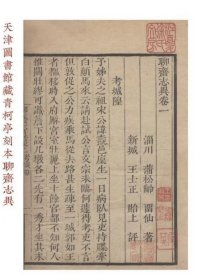 聊齋志異卷一
淄川 蒲松齡 留仙 著
新城 王士正 貽上 評
考城隍
予姊丈之祖宋公諱燾邑廩生一日病臥見吏持牒牽
白顛馬來云請赴試公言文宗未臨何遽得考吏不言
但敦促之公力疾乘馬從去路甚生疏至一城郭如王
者都移時入府廨宮室壯麗上坐十餘官都不知何人
惟關壯繆可識簷下設几墩各二先有一秀才坐其末
天津圖書館藏青柯亭刻本聊齋志異